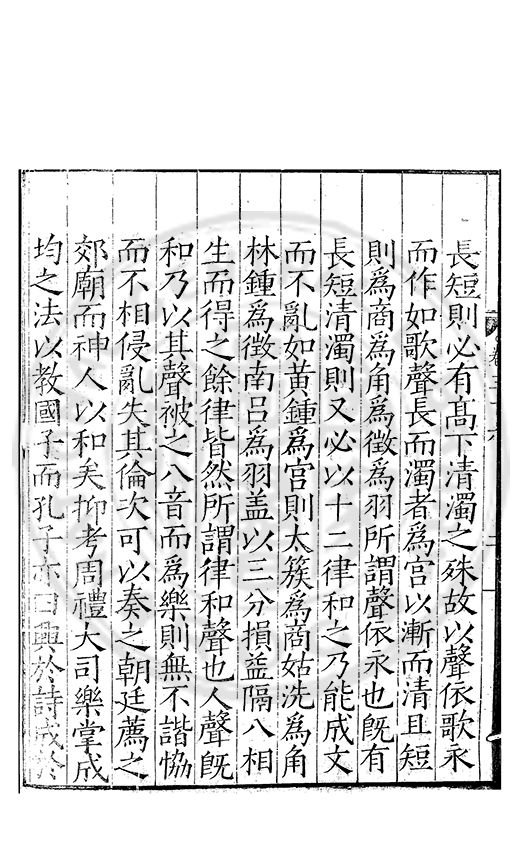 長短則必有髙下清濁之殊故以聲依歌永
而作如歌聲長而濁者爲宫以漸而清且短
則爲商爲角爲徵爲羽所謂聲依永也旣有
長短清濁則又必以十二律和之乃能成文
而不亂如黃鍾爲宫則太簇爲商姑洗爲角
林鍾爲徵南吕爲羽盖以三分損益隔八相
生而得之餘律皆然所謂律和聲也人聲旣
和乃以其聲被之八音而爲樂則無不諧恊
而不相侵亂失其倫次可以奏之朝廷薦之
郊廟而神人以和矣抑考周禮大司樂掌成
均之法以教國子而孔子亦曰興於詩成於